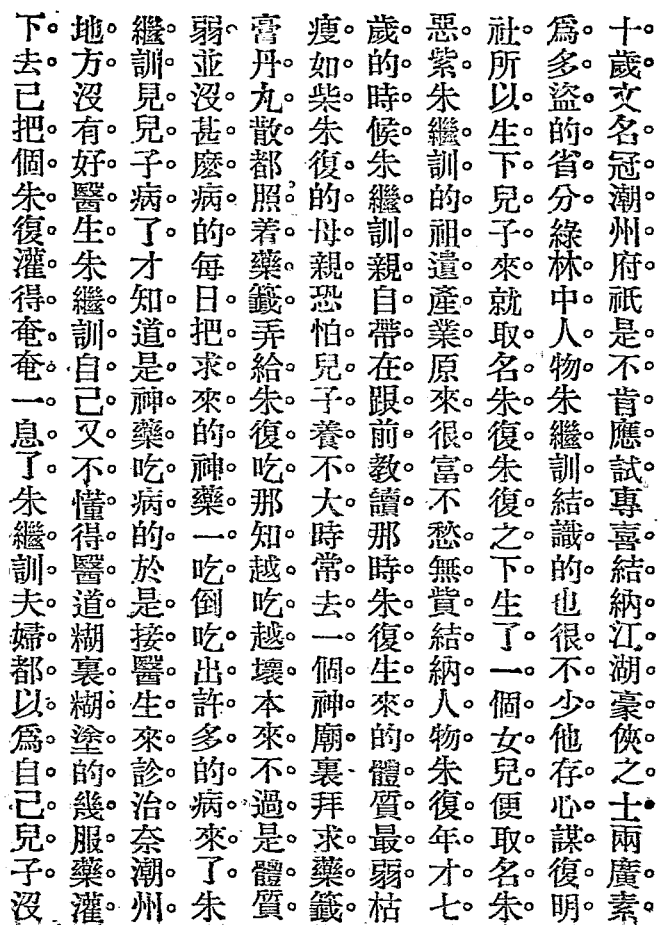 十歲文名冠潮州府祇是不肯應試專喜結納江湖豪俠之士兩廣素
爲多盜的省分綠林中人物朱繼訓結識的也很不少他存心謀復明
社所以生下兒子來就取名朱復朱復之下生了一個女兒便取名朱
惡紫朱繼訓的祖遺產業原來很富不愁無貲結納人物朱復年才七
歲的時候朱繼訓親自帶在跟前教讀那時朱復生來的體質最弱枯
瘦如柴朱復的母親恐怕兒子養不大時常去一個神廟裏拜求藥籤
膏丹丸散都照着藥籤弄給朱復吃那知越吃越壞本來不過是體質
弱並沒甚麽病的每日把求來的神藥一吃倒吃出許多的病來了朱
繼訓見兒子病了才知道是神藥吃病的於是接醫生來診治奈潮州
地方沒有好醫生朱繼訓自己又不懂得醫道糊裏糊塗的幾服藥灌
下去已把個朱復灌得奄奄一息了朱繼訓夫婦都以爲自己兒子沒